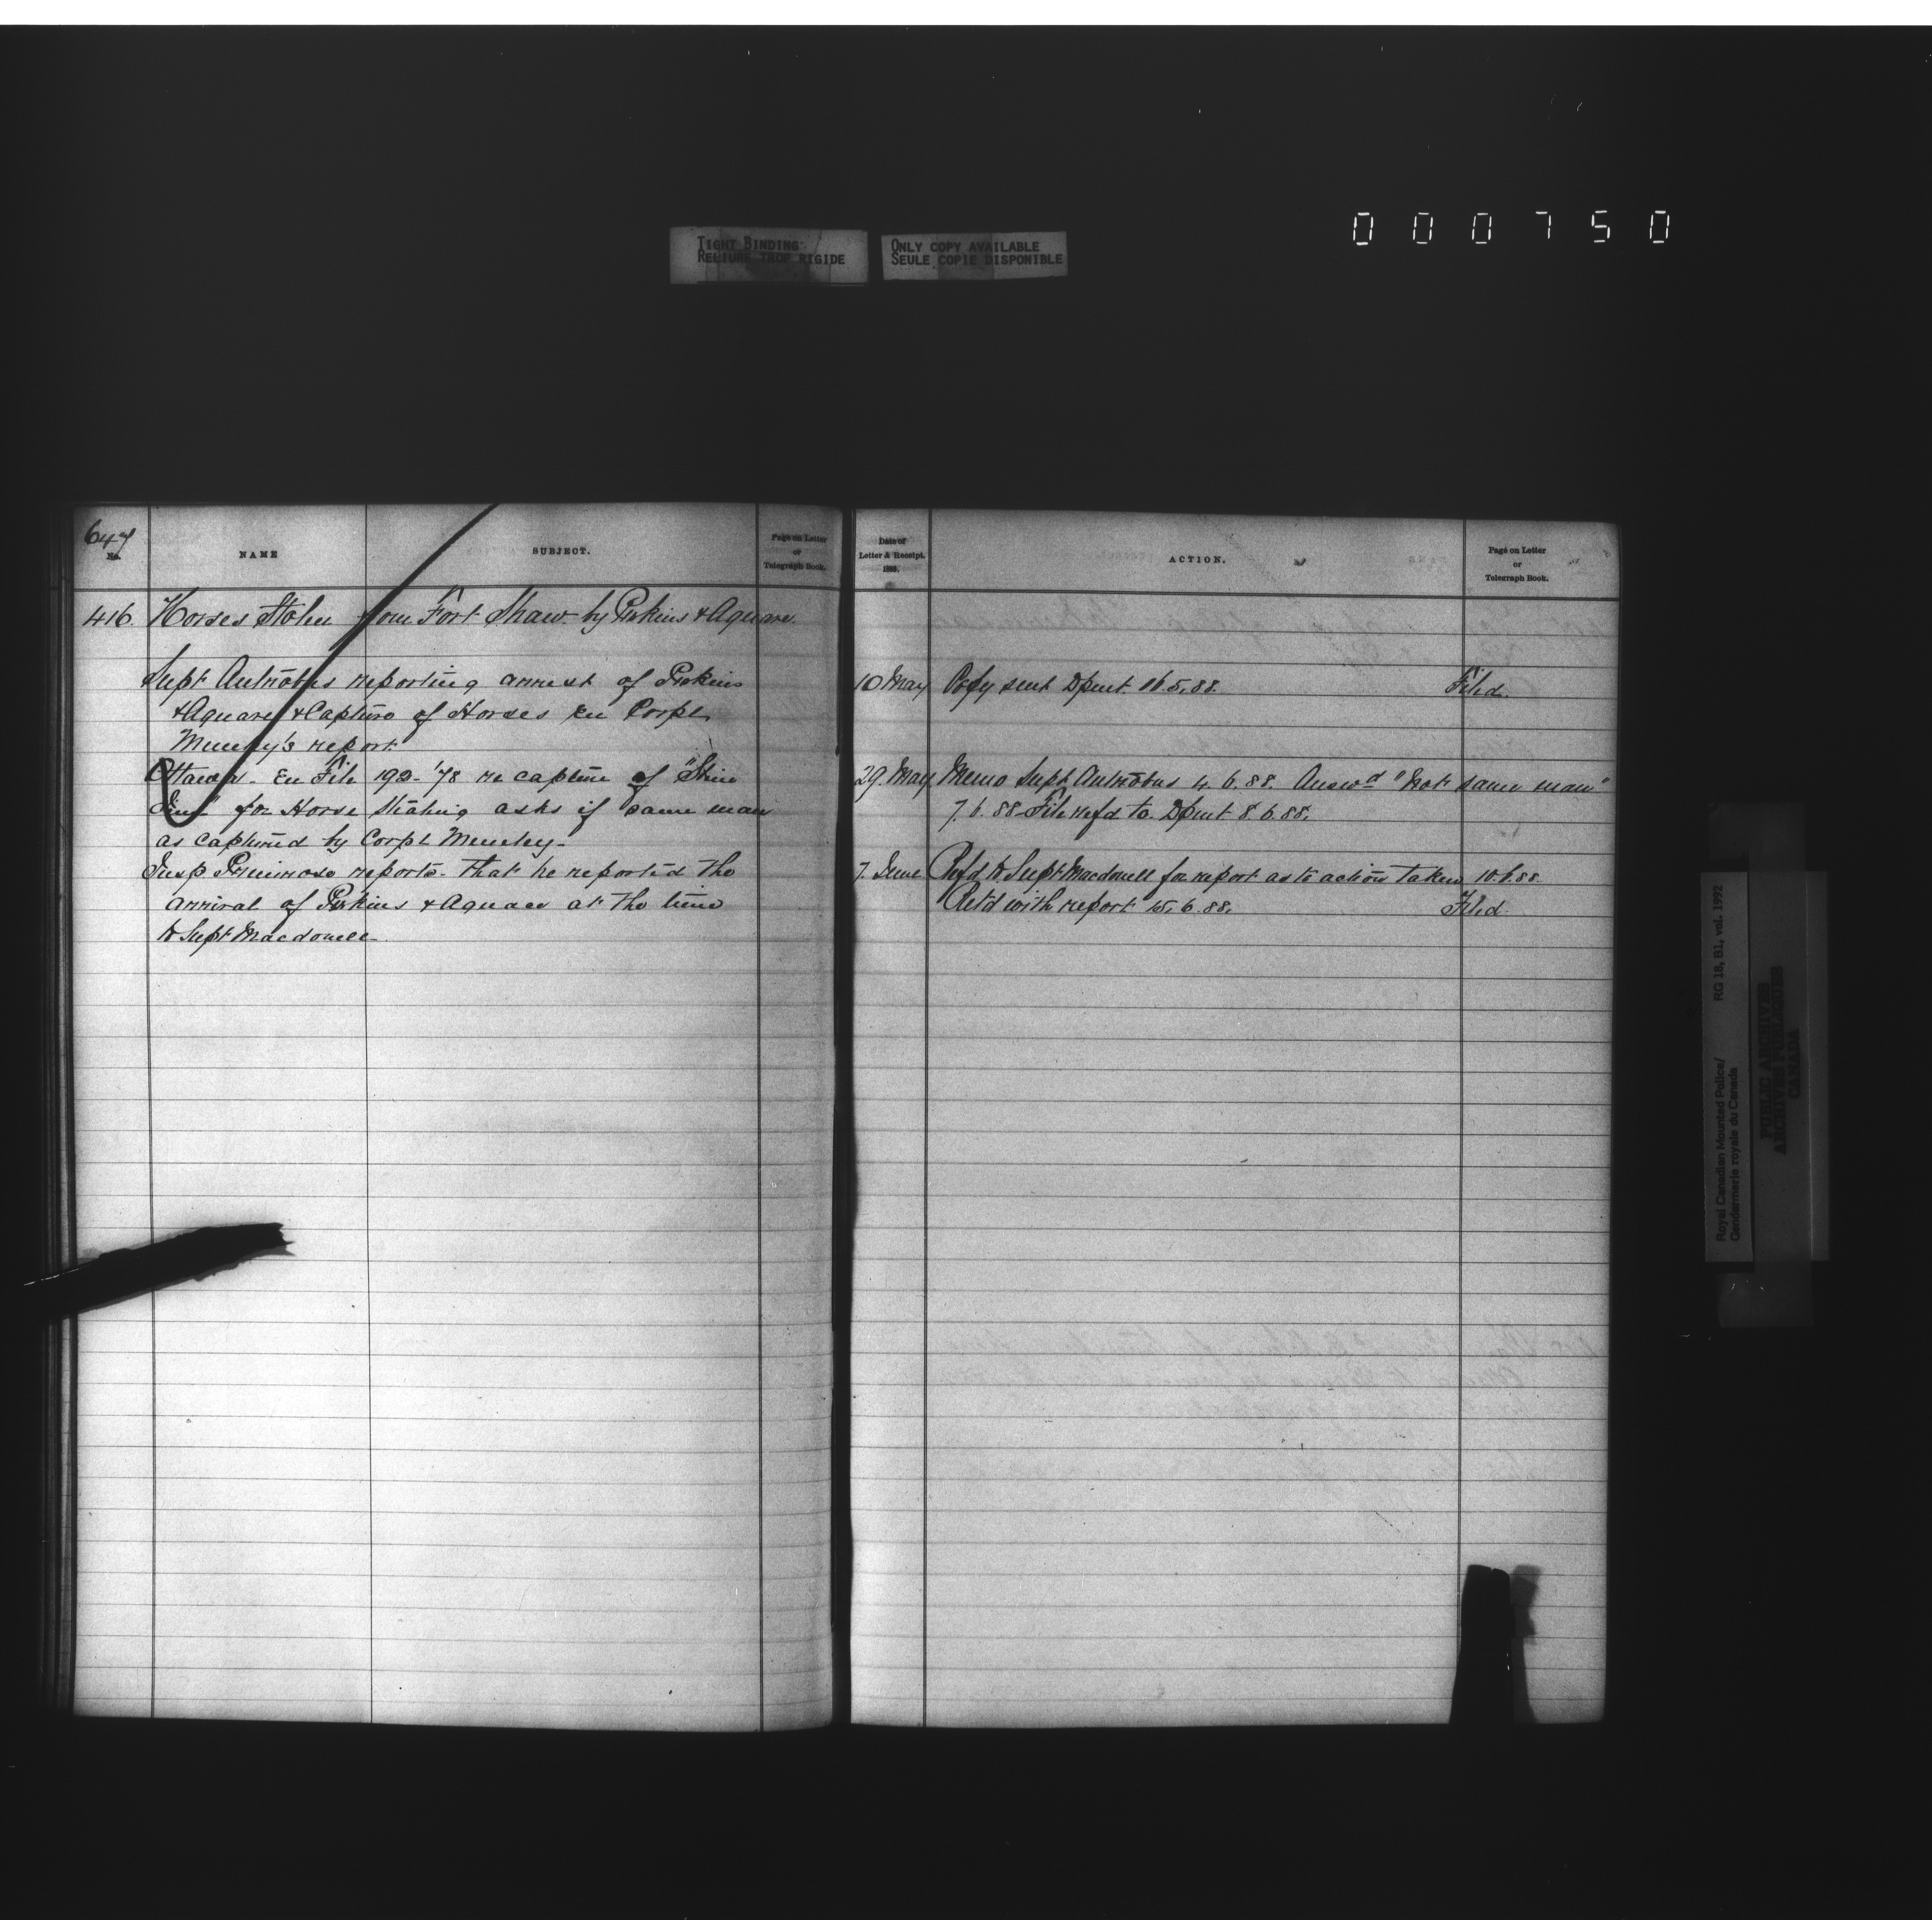 000750
TIGHT BINDING
RELIURE TROP RIGIDE
ONLY COPY AVAILABLE
SEULE COPIE DISPONIBLE
647
No.
NAME
SUBJECT.
Page on Letter
or
Telegraph Book.
416. Horses Stolen from Fort Shaw by Perkins & Aquare.
Supt Antrobus reporting arrest of Perkins
& Aquare & Capture of Horses Eu Corpl
report
Ottawa - Eu File 192-'78 re capture of "Slim
Jim" for Horse Stealing asks if same man
as captured by Corpl
Insp Primrose reports that he reported the
arrival of Perkins & Aquare at the time
to Supt Macdonell
Date of
Letter & Receipt.
1888.
ACTION.
Page on Letter
or
Telegraph Book.
10 May Copy sent Dpmt 16.5.88. Filed.
29. May Memo Supt Antrobus 4.6.88. Answd "Not same man"
7.6.88 File refd to Dpmt 8.6.88.
7. June Refd to Supt Macdonell for report as to action taken 10.6.88
Retd with report 15.6.88. Filed.
Royal Canadian Mounted Police/
Gendarmerie royale du Canada
RG 18, B1, vol. 1992
PUBLIC ARCHIVES
ARCHIVES PUBLIQUES
CANADA